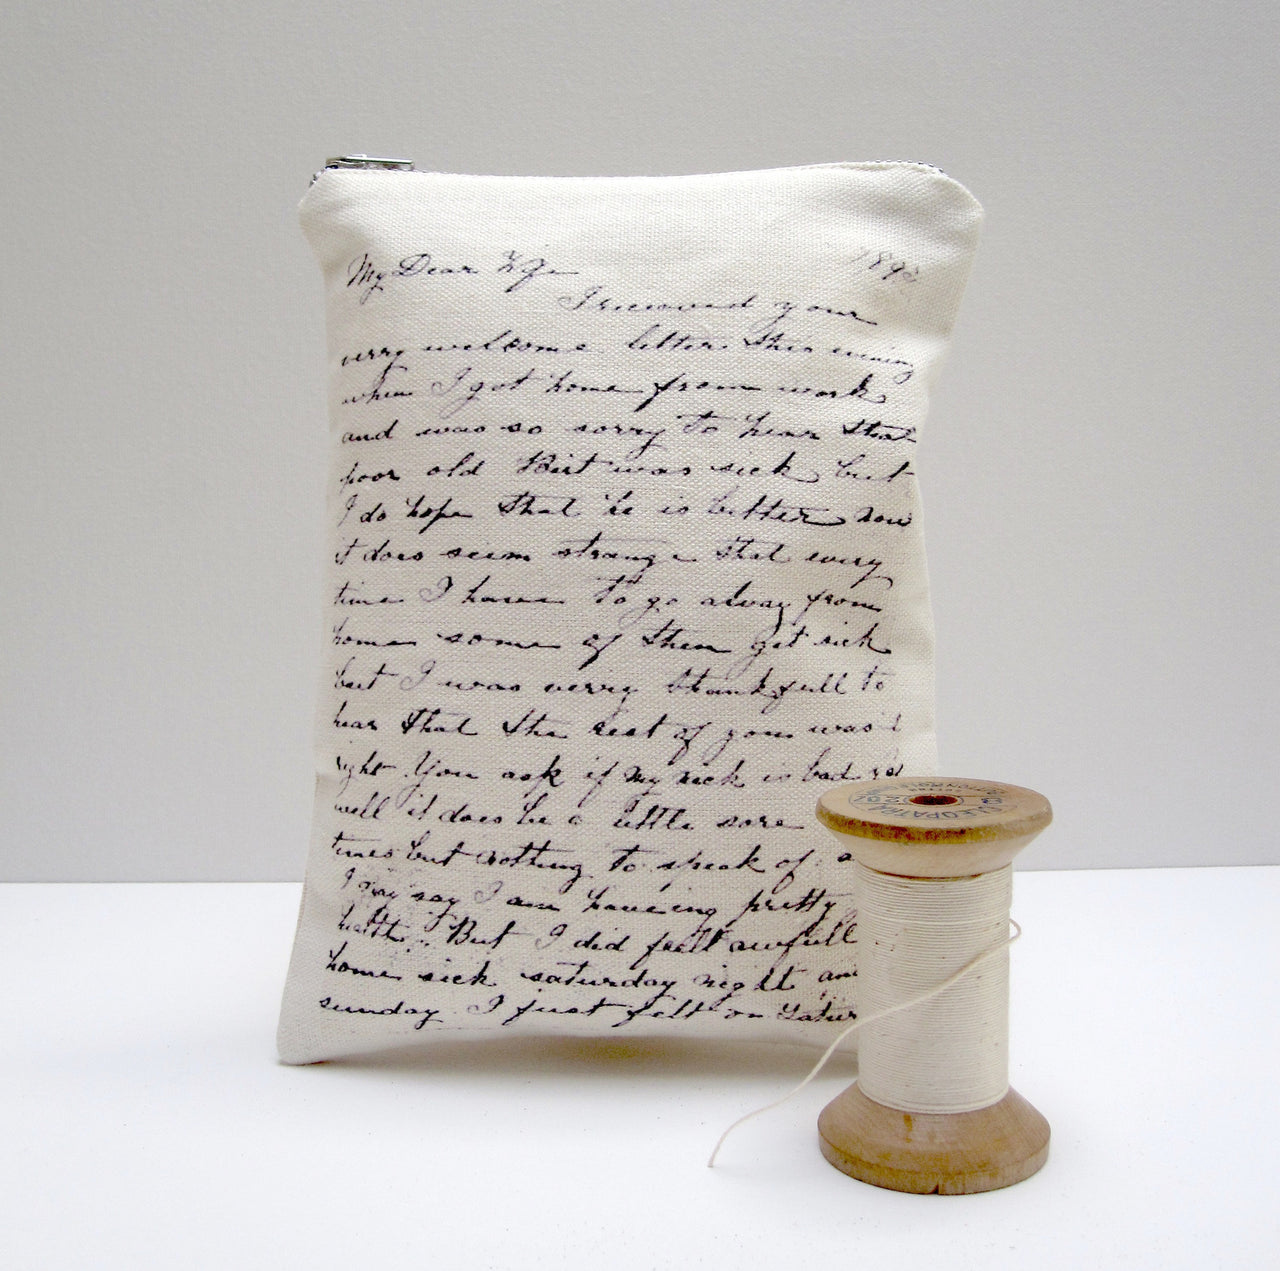 My Dear Wife 1892
I received your
verry welcome letter this evening
when I got home from work
and was so sorry to hear that
poor old Birt was sick but
I do hope that he is better now
it does seem strange that every
time I have to go alway from
home some of them get sick
but I was verry thankfull to
hear that the rest of you was
right You ask if my neck is bad yet
well it does be a little sore
times but nothing to speak of
I may say I am haveing pretty
health. But I did feell awfull
home sick saturday night and
sunday I just felt on Satur
CLEOPATRA